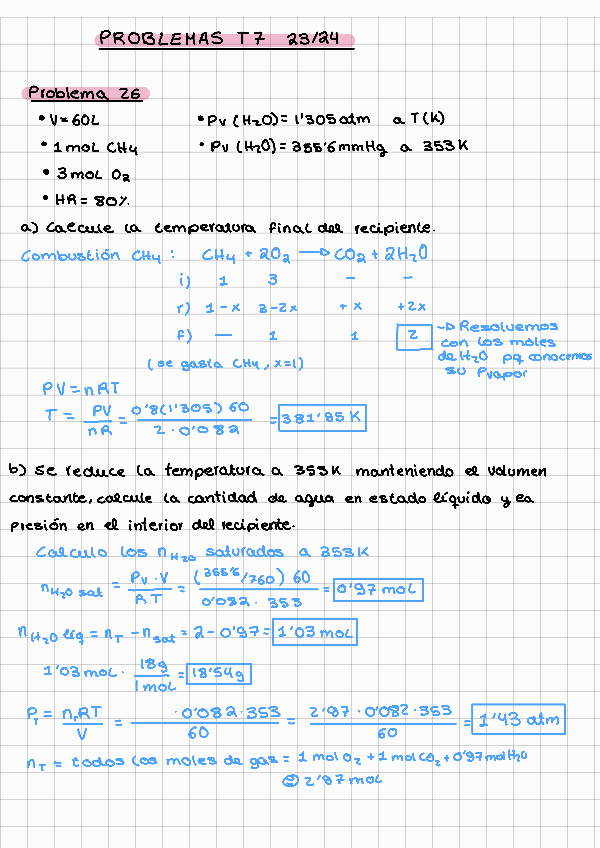 PROBLEMAS T7 23/24
Problema 26
• V= 60L
• Pv (H₂O)= 1'305 atm a T(K)
• 1 mol CH₄
• Pv (H₂O)= 355'6 mmHg a 353K
• 3 mol O₂
• HR = 80%
a) Calcule la temperatura final del recipiente.
Combustión CH₄ : CH₄ + 2O₂ → CO₂ + 2H₂O
i) 1 3 - -
r) 1-x 3-2x +x +2x
f) — 1 1 2 → Resolvemos
con los moles
de H₂O pq conocemos
su Pvapor
(se gasta CH₄, x=1)
PV = nRT
T = PV/nR = 0'8(1'305) 60 / 2 · 0'082 = 381'95 K
b) Se reduce la temperatura a 353K manteniendo el volumen
constante, calcule la cantidad de agua en estado líquido y la
presión en el interior del recipiente.
Calculo los nH₂O saturados a 353K
nH₂O sat = Pv · V / RT = (355'6/760) 60 / 0'082 · 353 = 0'97 mol
nH₂O líq = nT - nsat = 2 - 0'97 = 1'03 mol
1'03 mol · 18g / 1 mol = 18'54g
PT = nTRT / V = · 0'082 · 353 / 60 = 2'97 · 0'082 · 353 / 60 = 1'43 atm
nT = todos los moles de gas = 1 mol O₂ + 1 mol CO₂ + 0'97 mol H₂O
= 2'97 mol